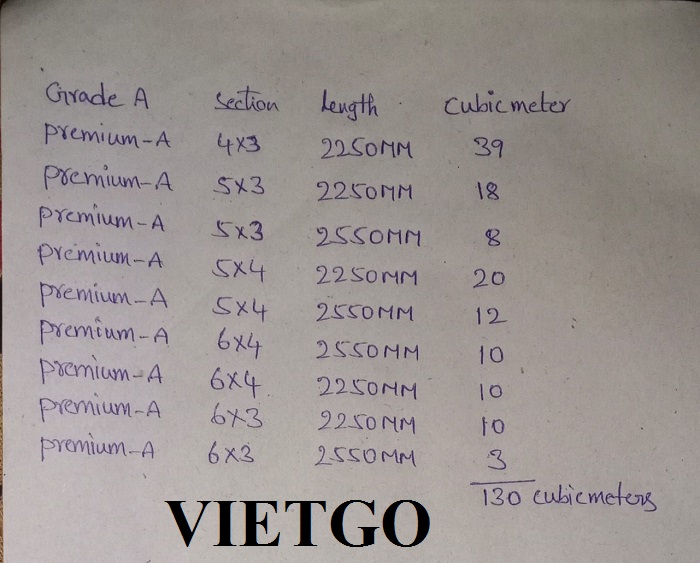 Grade A section Length Cubicmeter
premium-A 4x3 2250MM 39
premium-A 5x3 2250MM 18
premium-A 5x3 2550MM 8
premium-A 5x4 2250MM 20
premium-A 5x4 2550MM 12
premium-A 6x4 2550MM 10
premium-A 6x4 2250MM 10
premium-A 6x3 2250MM 10
premium-A 6x3 2550MM 3
130 cubicmeters
VIETGO